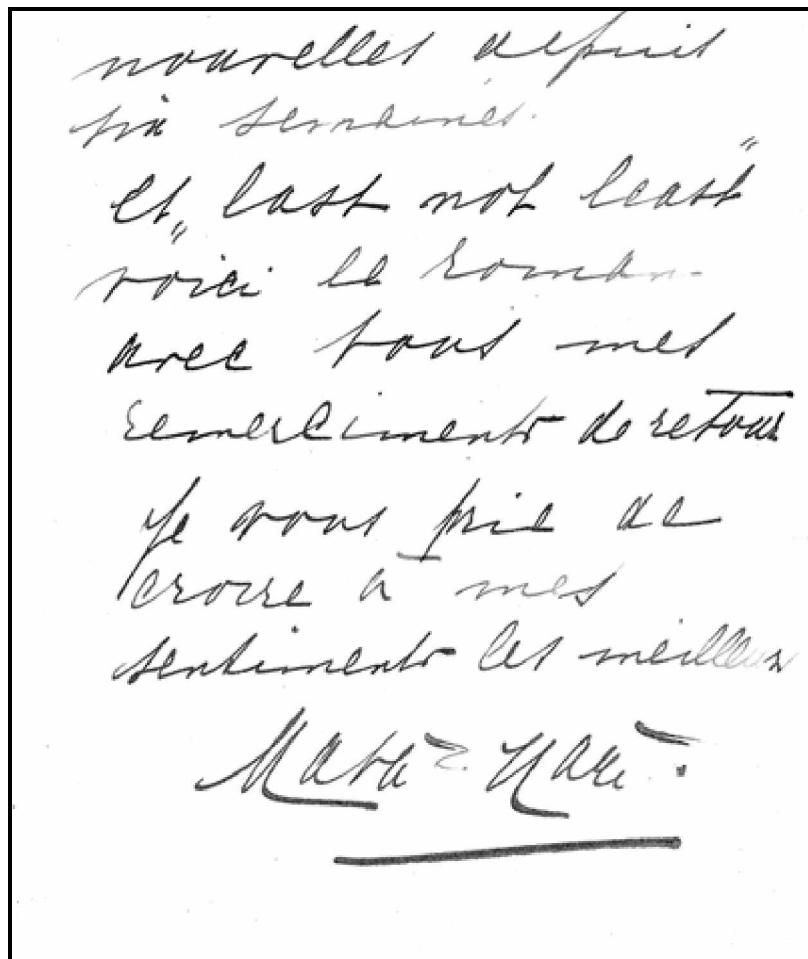 nouvelles depuis
six semaines.
et „last not least"
voici le roman
avec tous mes
remerciments de retour
Je vous prie de
croire à mes
sentiments les meilleurs
Mata-Hari.